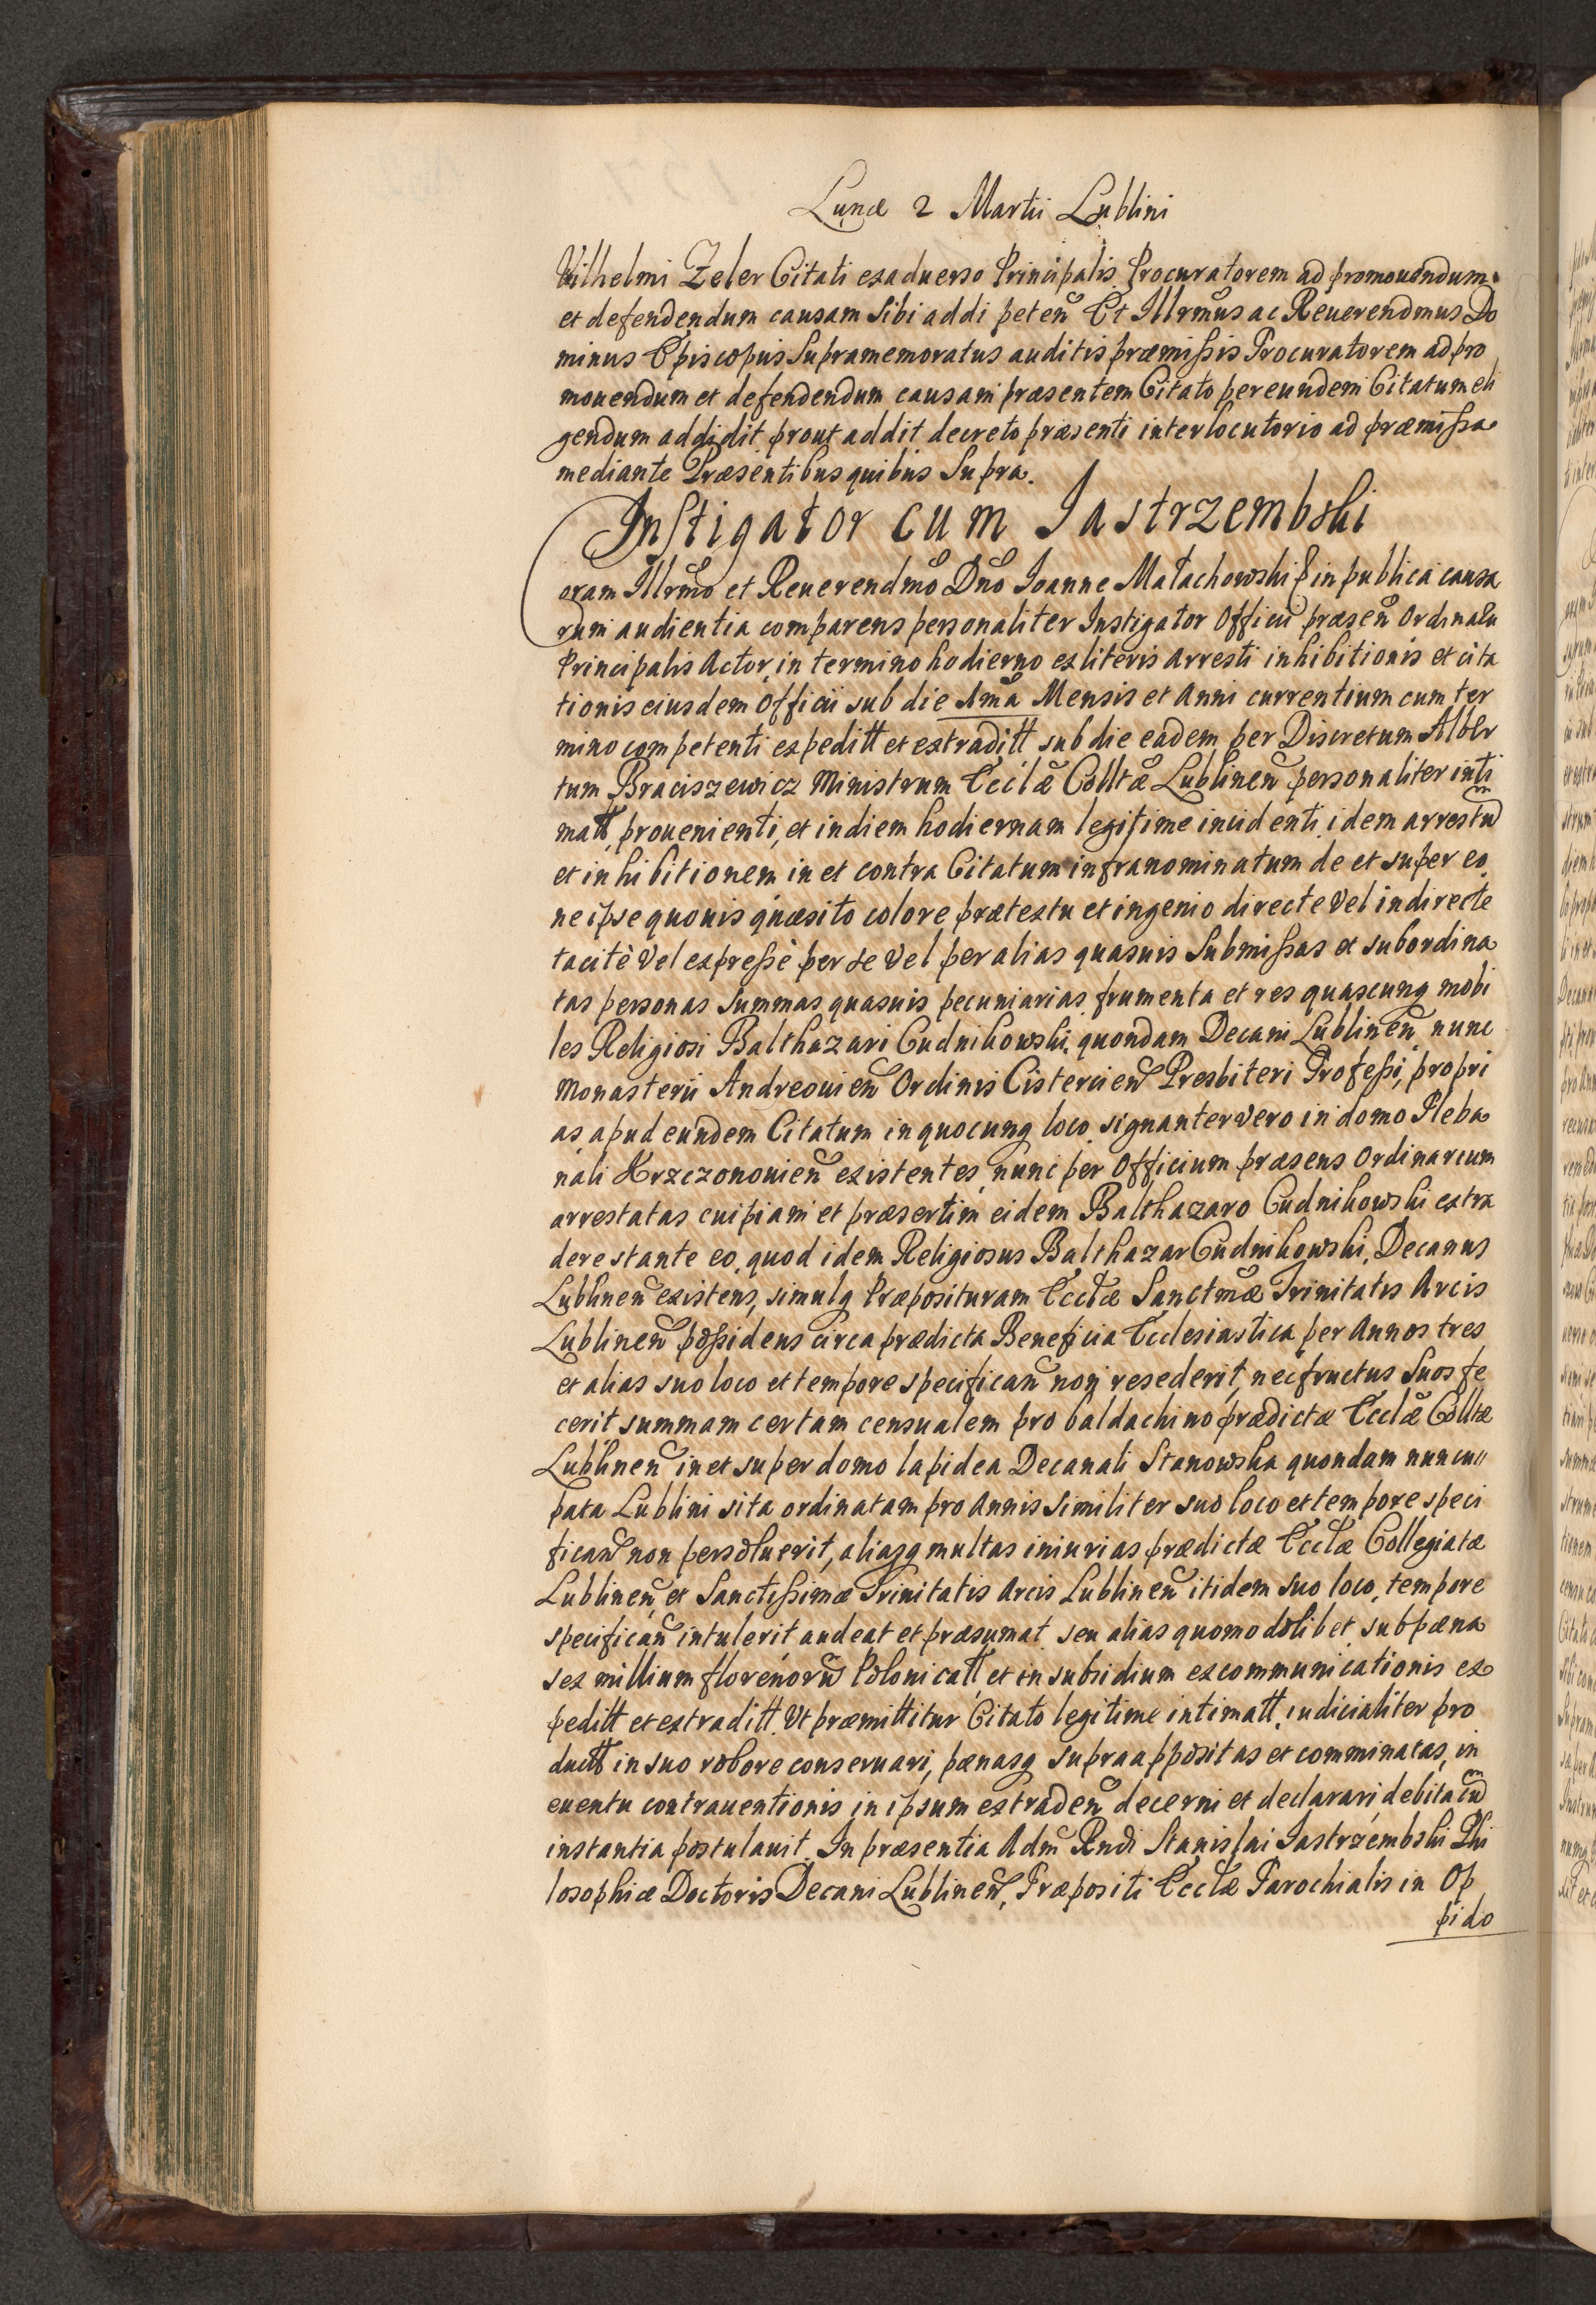 Lunæ 2 Martii Lublini
Wilhelmi Zeler Citati ex aduerso Principalis Procuratorem ad promouendum
et defendendum causam sibi addi peteñ Et Illrmus ac Reuerendmus Do
minus Episcopus Supramemoratus auditis præmissis Procuratorem ad pro
mouendum et defendendum causam præsentem Citato per eundem Citatum eli
gendum addidit prout addit decreto præsenti interlocutorio ad præmissa
mediante Præsentibus quibus Supra.
Instigator cum Jastrzembski
Coram Illrmo et Reuerendmo Dno Ioanne Małachowski in publica causa
rum audientia comparens personaliter Instigator Officii præseñ Ordinarii
Principalis Actor, in termino hodierno ex literis arresti inhibitionis et cita
tionis eiusdem Officii sub die 1ma Mensis et Anni currentium cum ter
mino competenti expeditt et extraditt sub die eadem per Discretum Alber
tum Braciszewicz Ministrum Eccłæ Colltæ Lublineñ personaliter inti
matt, prouenienti, et in diem hodiernam legitime incidenti idem arrestum
et inhibitionem in et contra Citatum infranominatum de et super eo
ne ipse quouis quæsito colore prætextu et ingenio directe vel indirecte
tacitè vel expressè per se vel per alias quasuis Submissas et subordina
tas personas summas quasuis pecuniarias frumenta et res quascunq mobi
les Religiosi Balthazari Cudnikowski quondam Decani Lublineñ nunc
Monasterii Andreouieñ Ordinis Cistercieñ Presbiteri Professi, propri
as apud eundem Citatum in quocunq loco signanter vero in domo Pleba
nali Krzczonouieñ existentes, nunc per Officium præsens Ordinarium
arrestatas cuipiam et præsertim eidem Balthazaro Cudnikowski extra
dere stante eo, quod idem Religiosus Balthazar Cudnikowski, Decanus
Lublineñ existens, simulq Præposituram Eccłæ Sanctmæ Trinitatis Arcis
Lublineñ possidens circa prædicta Beneficia Ecclesiastica per Annos tres
et alias suo loco et tempore specificañ non resederit, nec fructus Suos fe
cerit summam certam censualem pro baldachino prædictæ Eccłæ Colltæ
Lublineñ in et super domo lapidea Decanali Stanowska quondam nuncu
pata Lublini sita ordinatam pro Annis similiter suo loco et tempore speci
ficañ non persoluerit, aliasq multas iniurias prædictæ Eccłæ Collegiatæ
Lublineñ et Sanctissimæ Trinitatis Arcis Lublineñ itidem suo loco, tempore
specificañ intulerit audeat et præsumat seu alias quomodolibet sub pæna
sex millium florenorum Polonicatt et in subsidium excommunicationis ex
peditt et extraditt. Ut præmittitur Citato legitime intimatt iudicialiter pro
ductt in suo robore conseruari, pænasq supra appositas et comminatas, in
euentu contrauentionis in ipsum extradeñ decerni et declarari debita cum
instantia postulauit. In præsentia Adm Rndi Stanislai Jastrzembski Phi
losophiæ Doctoris Decani Lublineñ, Præpositi Eccłæ Parochialis in Op
pido